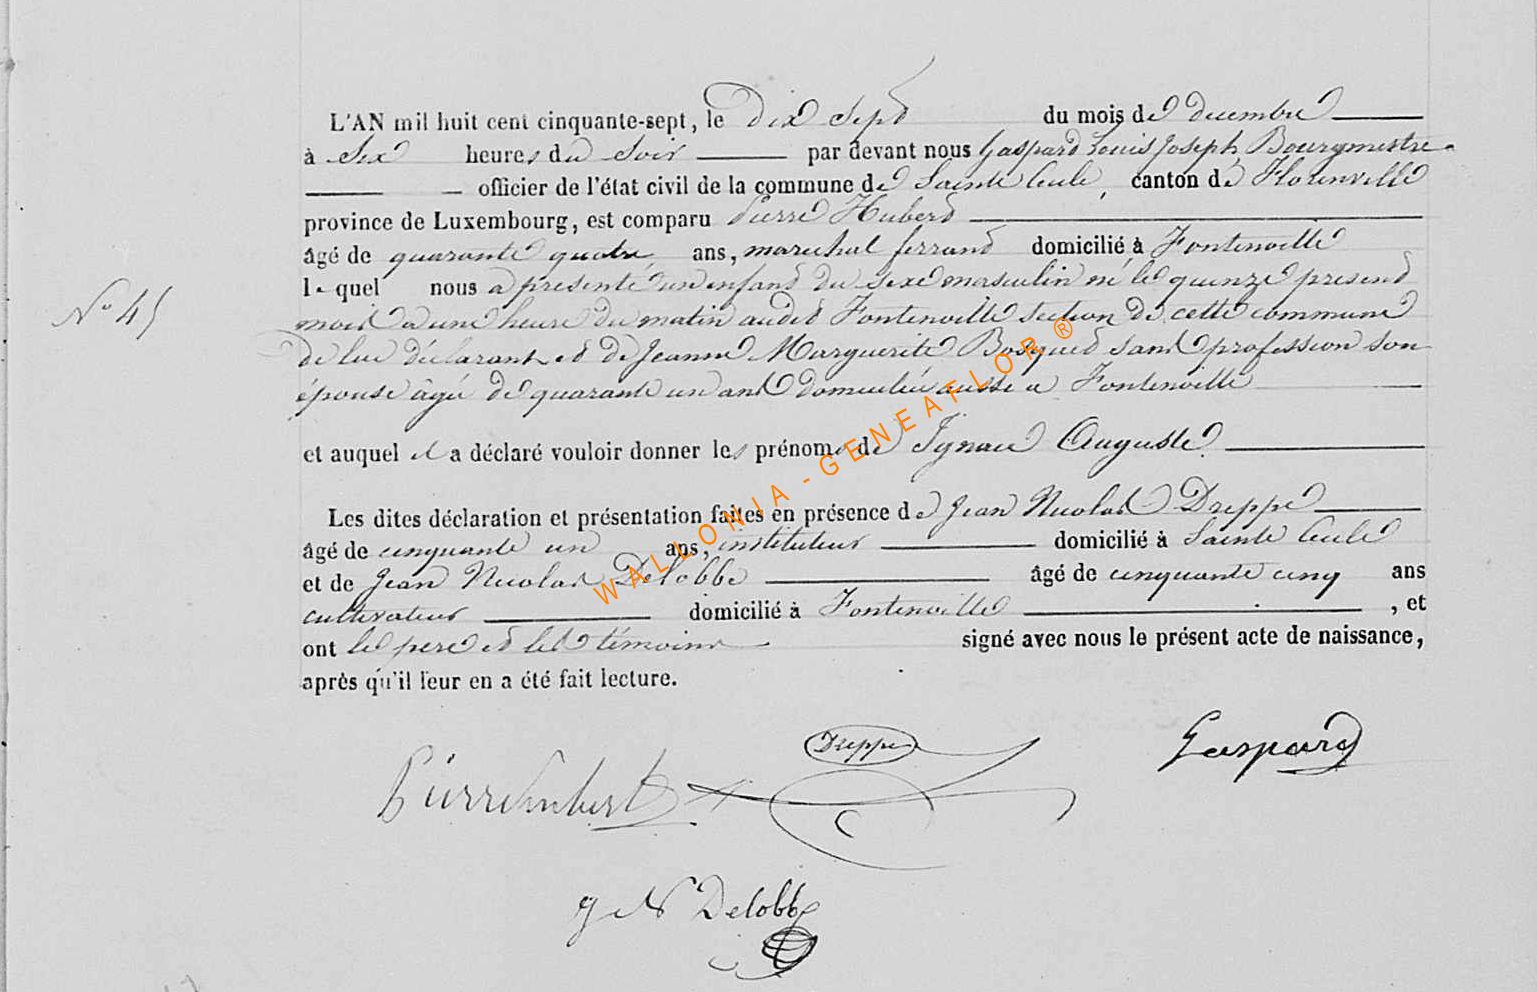 L'AN mil huit cent cinquante-sept, le Dix Sept du mois de decembre
à Six heures du Soir par devant nous Gaspard Louis Joseph, Bourgmestre
officier de l'état civil de la commune de Sainte Cecile, canton de Florenville
province de Luxembourg, est comparu Pierre Hubert
âgé de quarante quatre ans, marechal ferrant domicilié à Fontenoille
lequel nous a présenté un enfant du sexe masculin né le quinze present
mois a une heure du matin audit Fontenoille section de cette commune
de lui déclarant et de Jeanne Marguerite Bosquet sans profession son
épouse âgée de quarante un ans domiciliée aussi a Fontenoille
N° 45
et auquel il a déclaré vouloir donner les prénoms de Ignace Auguste
Les dites déclaration et présentation faites en présence de Jean Nicolas Dreppe
âgé de cinquante un ans, instituteur domicilié à Sainte Cecile
et de Jean Nicolas Delobbe âgé de cinquante cinq ans
cultivateur domicilié à Fontenoille , et
ont le pere et les témoins signé avec nous le présent acte de naissance,
après qu'il leur en a été fait lecture.
WALLONIA-GENEAFLOR ®
Dreppe
Gaspard
Pierre hubert
J N Delobbe